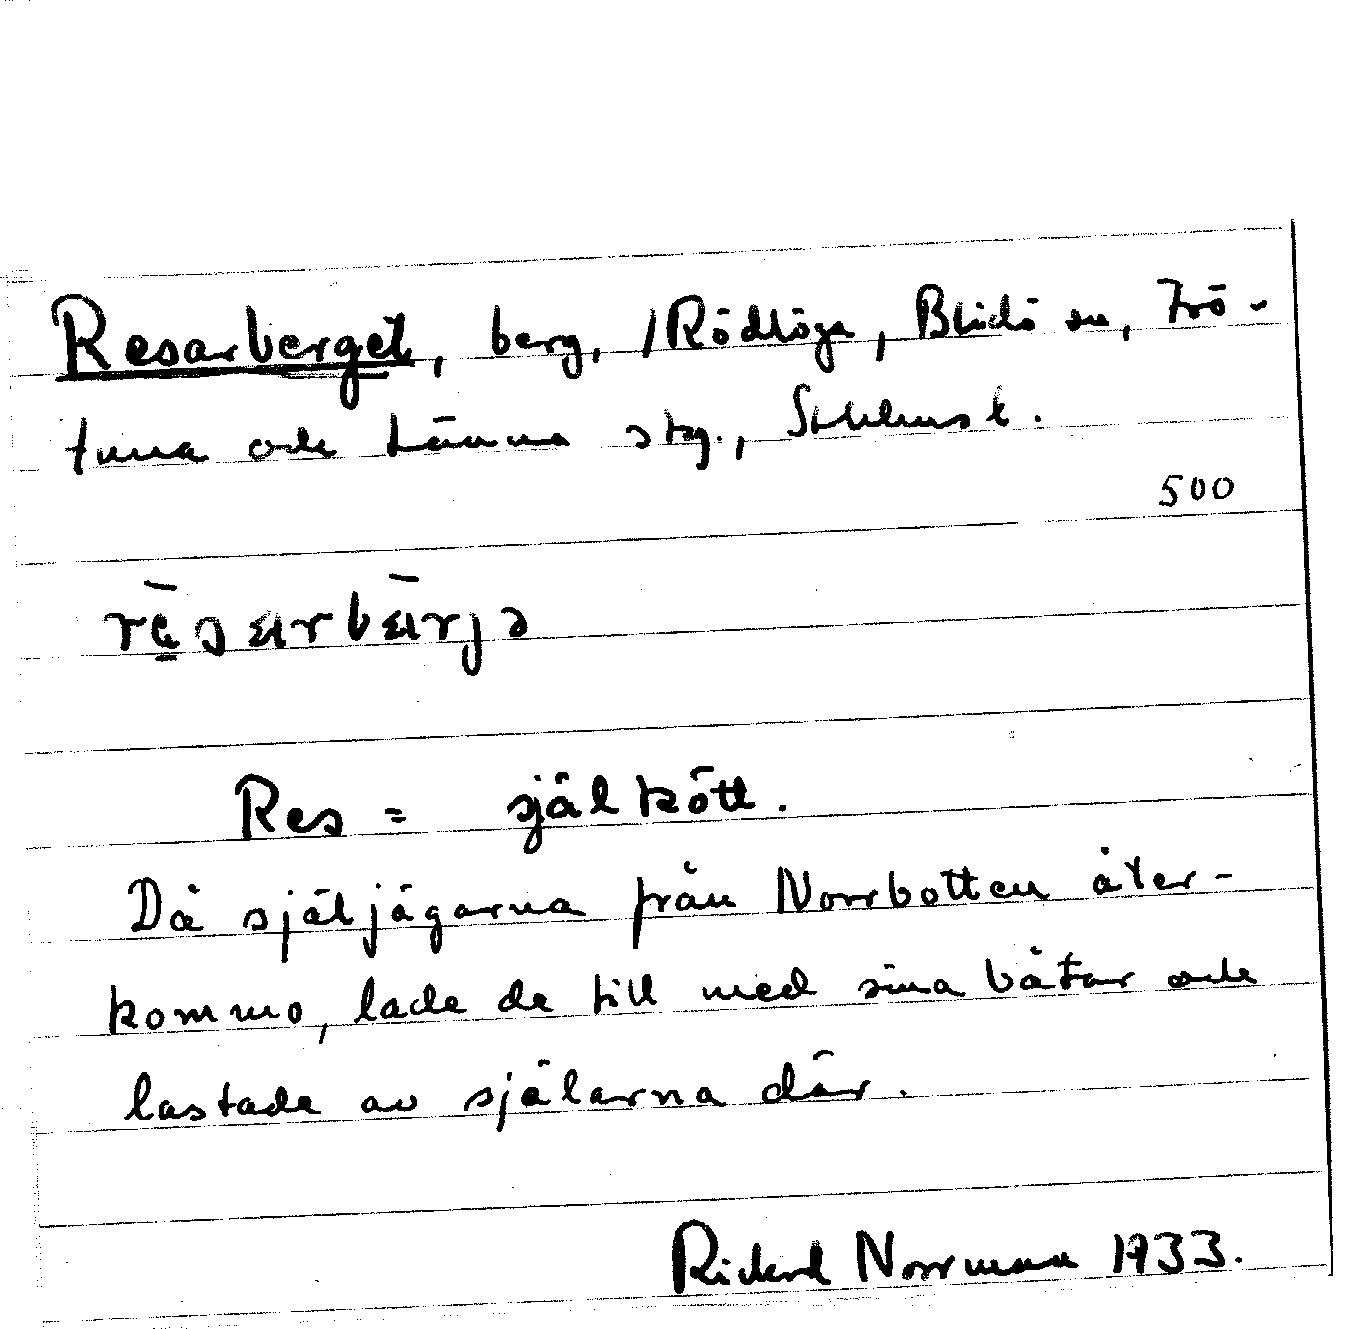 Resarberget, berg, /Rödlöga, Blidö sn, Frö-
tuna och Länna skg., Sthlms l.
500
Res = själ kött.
Då säljägarna från Norrbotten åter-
kommo, lade de till med sina båtar och
lastade av själarna där.
Rickard Norrman 1933.